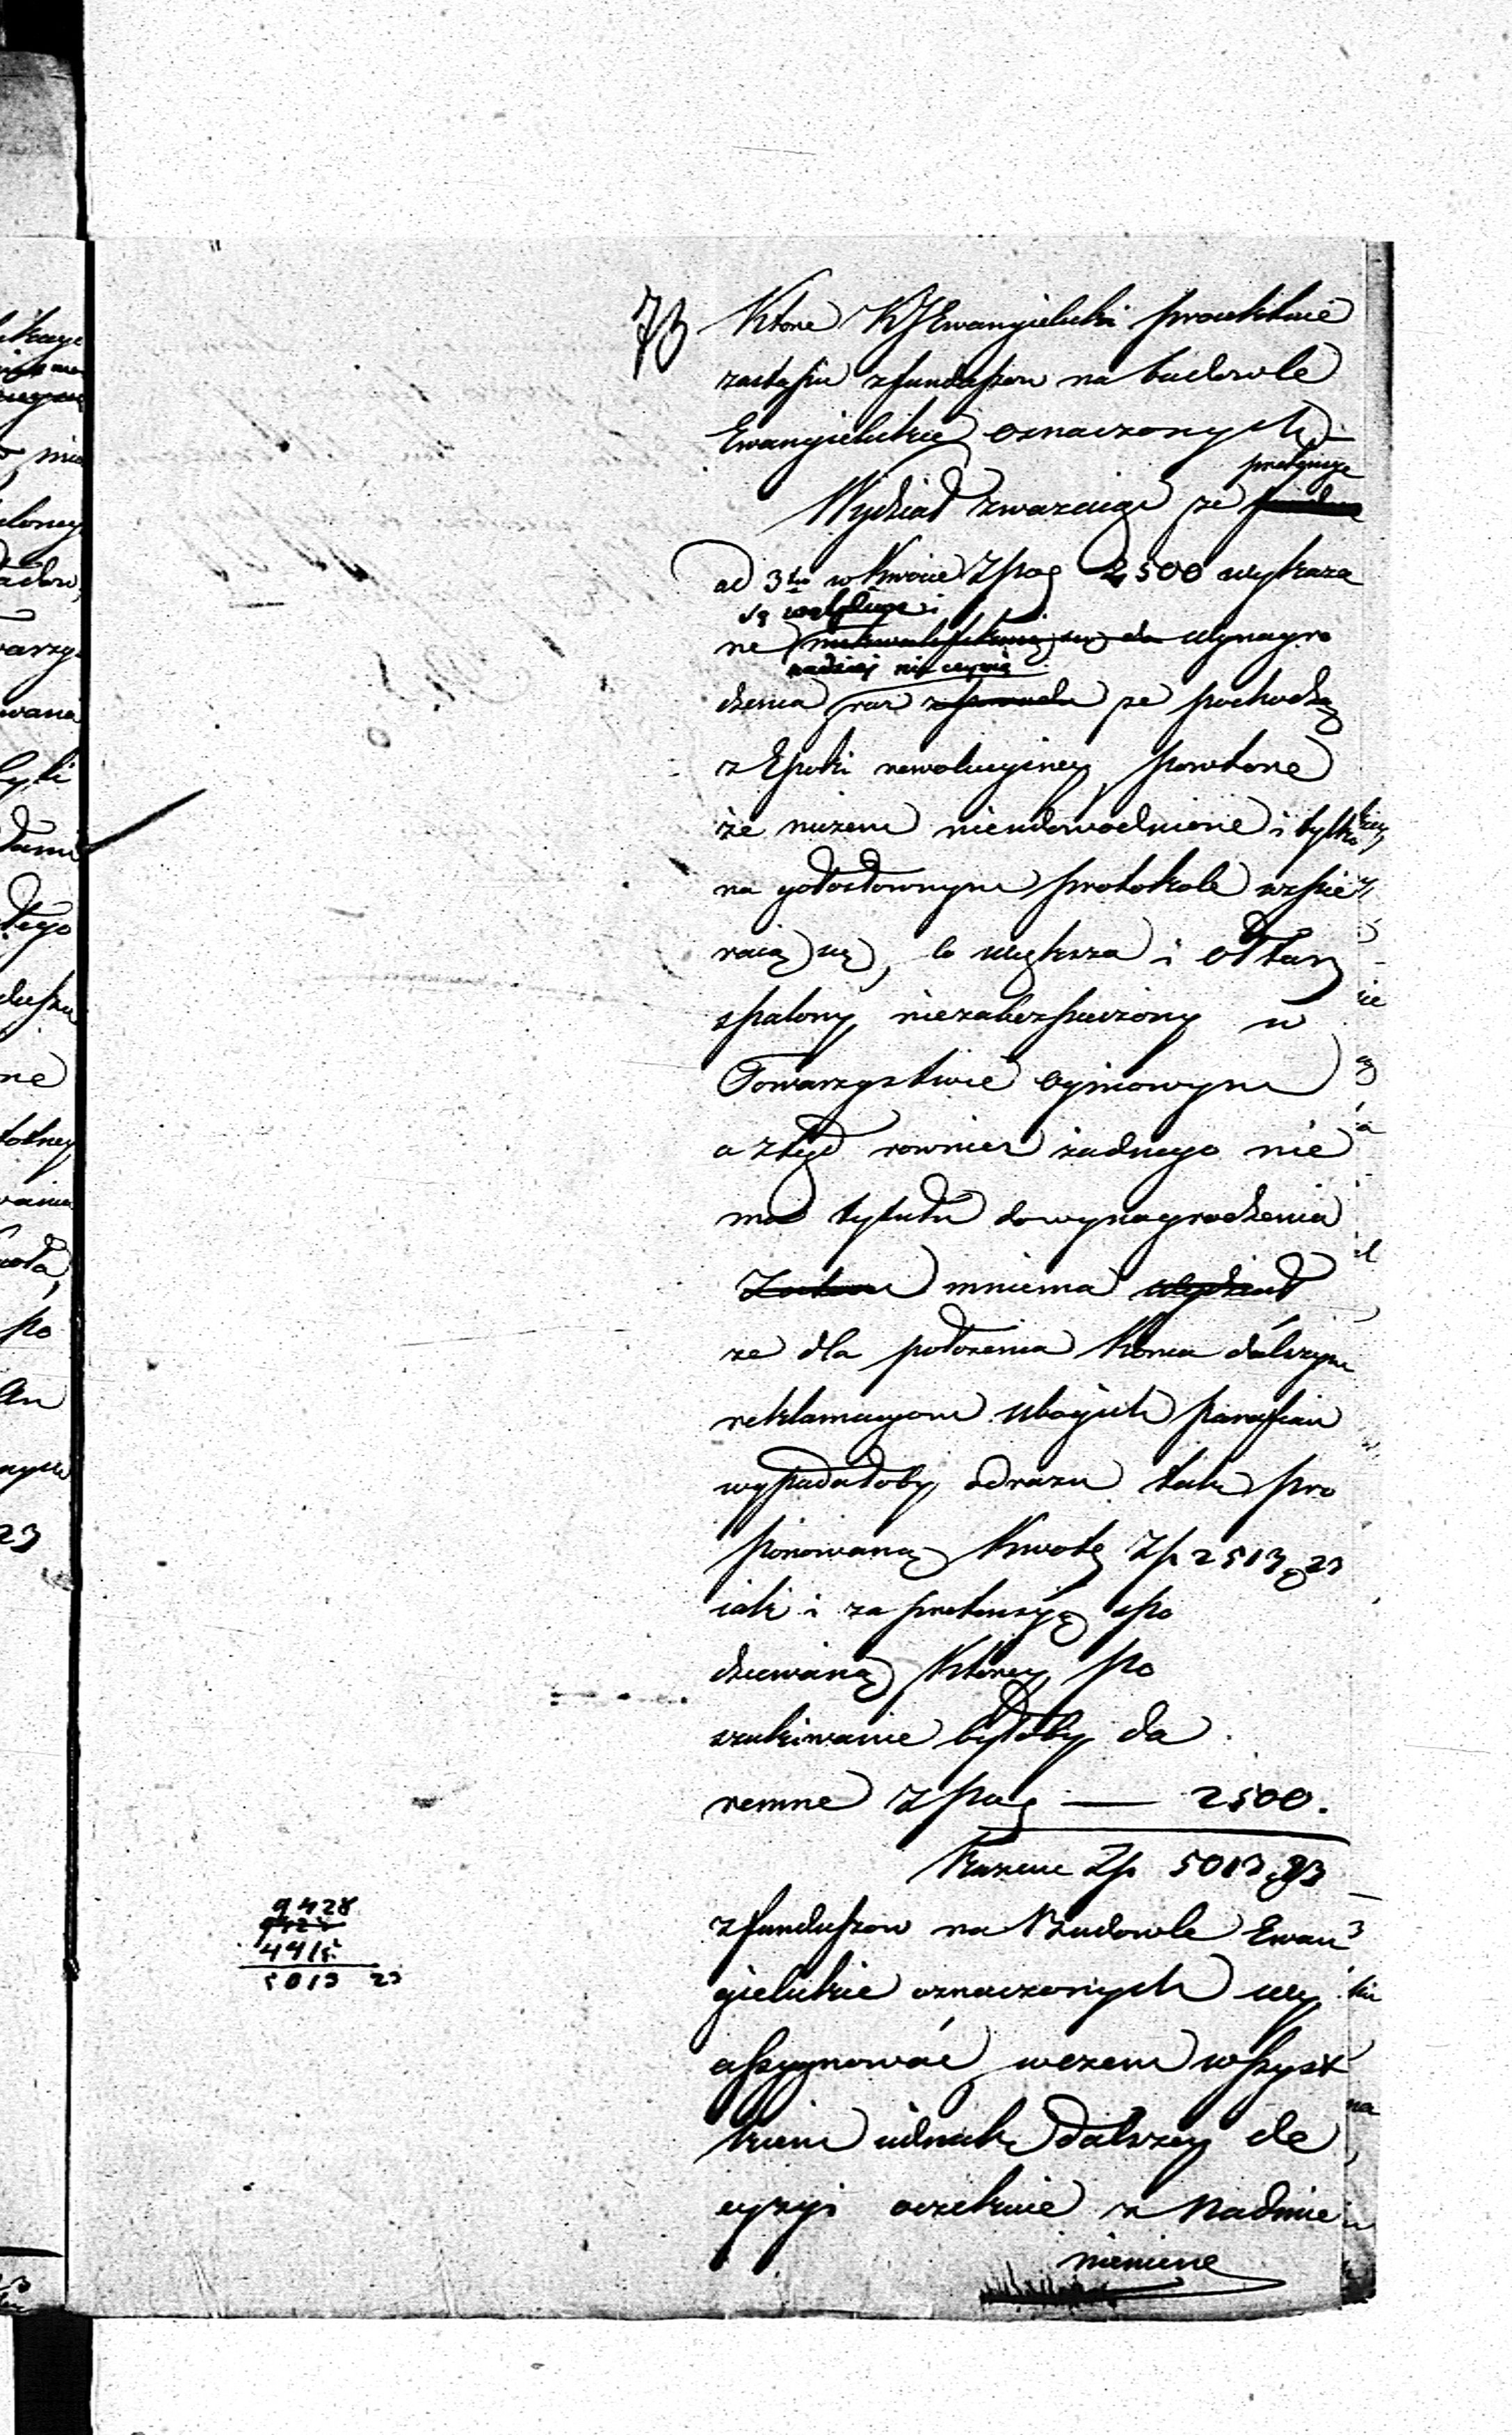 73
Które KJ Ewangielicki proiektuie
zastąpić z funduszów na budowle
Ewangielickie oznaczonych
Wydział zważając że pretensye
ad 3tu w kwocie Zpag 2500 wykaza
są wątpliwe i
ne niekwalifikuią się do wynagro
nadziei nie czynią
dzenia raz że pochodzą
z Epoki rewolucyiney, powtore
że niczem nieudowodnione i tylko
na gołosłownym protokole wspie
raią się, co większa i ołtarz
spalony niezabezpieczony w
Towarzystwie ogniowym
a ztąd rownież żadnego nie
ma tytułu do wynagrodzenia
mniema Wydział
że dla położenia końca dalszym
reklamacyom ubogich parafian
wypadałoby odrazu tak pro
ponowaną kwotę Zp 2513, 23
iak i za pretensyą spo
dziewaną ktorey po
szukiwanie byłoby da
remne Zpag — 2500.
Razem Zp 5013, 23
z funduszow na Budowle Ewan
gielickie oznaczonych wy
assygnować, w czem wszyst
kiem iednak dalszey de
cyzyi oczekuie z Nadmie
nieniem
9428
4415
5013 23